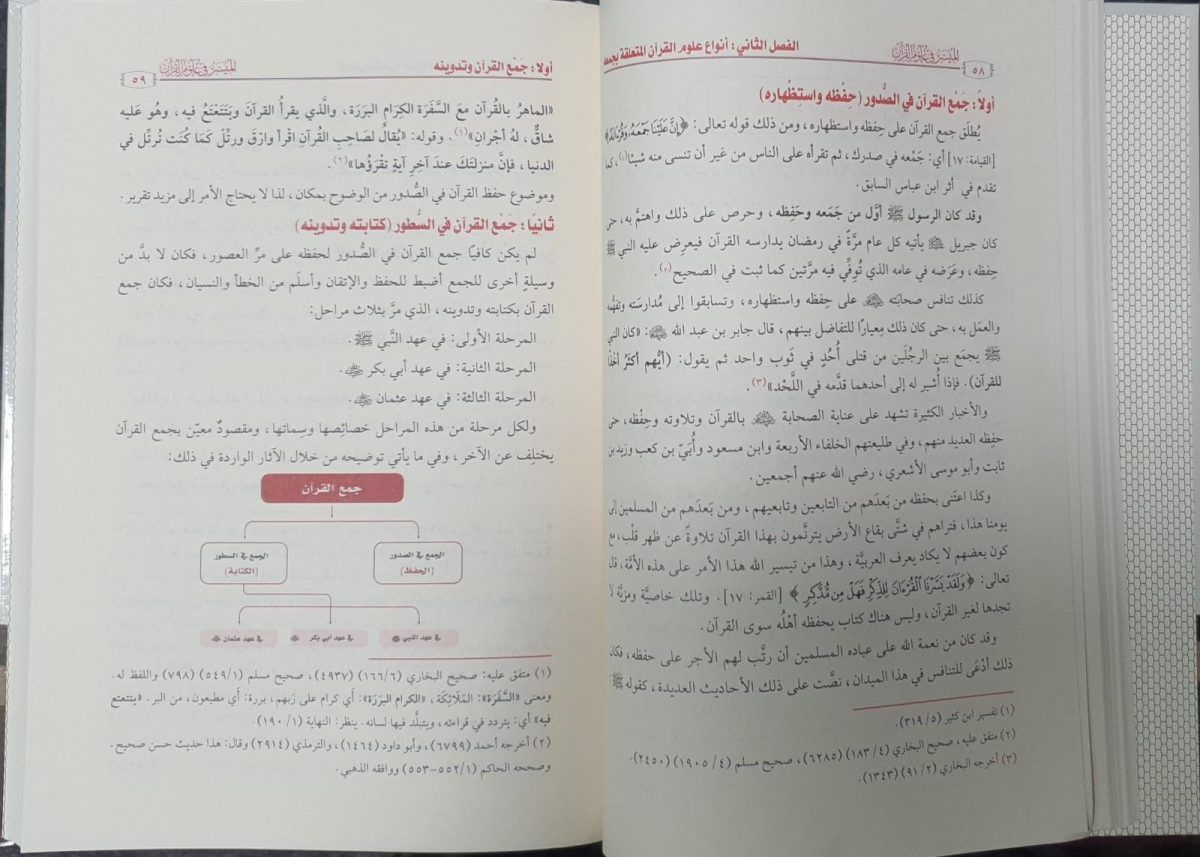 الميسر في علوم القرآن
الفصل الثاني: أنواع علوم القرآن المتعلقة بجمعه
٥٨
أولاً: جَمْع القرآن في الصُّدور (حفْظه واستِظْهاره)
يُطلَق جمع القرآن على حِفظه واستظهاره، ومن ذلك قوله تعالى: ﴿إِنَّ عَلَيْنَا جَمْعَهُ وَقُرْءَانَهُ﴾
[القيامة: ١٧] أي: جَمْعه في صدرك، ثم تقرأه على الناس من غير أن تنسى منه شيئًا(١)، كما
تقدم في أثر ابن عباس السابق.
وقد كان الرسول ﷺ أوَّل من جَمَعه وحَفِظه، وحرص على ذلك واهتمَّ به، حتى
كان جبريل ﷺ يأتيه كل عام مرَّةً في رمضان يدارسه القرآن فيعرِض عليه النبي ﷺ
حِفظه، وعَرَضه في عامه الذي تُوفِّي فيه مرَّتين كما ثبت في الصحيح(٢).
كذلك تنافس صحابته ﷺ على حِفظه واستظهاره، وتسابقوا إلى مُدارسَته وتفهُّمه
والعمَل به، حتى كان ذلك مِعيارًا للتفاضل بينهم، قال جابر بن عبد الله: «كان النبي
ﷺ يجمَع بين الرجُلَين من قتلى أُحُدٍ في ثَوب واحد ثم يقول: (أيُّهم أكثَرُ أخْذًا
للقرآن). فإذا أُشير له إلى أحدهما قدَّمه في اللَّحْد»(٣).
والأخبار الكثيرة تشهد على عناية الصحابة بالقرآن وتلاوته وحِفْظه، حتى
حفِظه العديد منهم، وفي طليعتهم الخلفاء الأربعة وابن مسعود وأُبَيّ بن كعب وزيد بن
ثابت وأبو موسى الأشعري، رضي الله عنهم أجمعين.
وكذا اعتَنى بحفظه من بَعدَهم من التابعين وتابعيهم، ومن بَعدَهم من المسلمين إلى
يومنا هذا، فتراهم في شتَّى بقاع الأرض يترنَّمون بهذا القرآن تلاوةً عن ظهر قلْب، مع
كون بعضهم لا يكاد يعرف العربيَّة، وهذا من تيسير الله هذا الأمر على هذه الأمَّة، قال
تعالى: ﴿وَلَقَدْ يَسَّرْنَا الْقُرْءَانَ لِلذِّكْرِ فَهَلْ مِن مُّدَّكِرٍ﴾ [القمر: ١٧]. وتلك خاصيَّة ومزيَّة لا
تجدها لغير القرآن، وليس هناك كتاب يحفظه أهْلُه سوى القرآن.
وقد كان من نعمة الله على عباده المسلمين أن رتَّب لهم الأجر على حفظه، فكان
ذلك أدْعَى للتنافس في هذا الميدان، نصَّت على ذلك الأحاديث العديدة، كقوله ﷺ
(١) تفسير ابن كثير (٥/ ٣١٩).
(٢) متفق عليه، صحيح البخاري (٤/ ١٨٣) (٦٢٨٥)، صحيح مسلم (٤/ ١٩٠٥) (٢٤٥٠).
(٣) أخرجه البخاري (٢/ ٩١) (١٣٤٣).
أولا: جَمْع القرآن وتدوينه
الميسر في علوم القرآن
٥٩
«الماهرُ بالقُرآن معَ السَّفَرَة الكِرَامِ البرَرَة، والَّذي يقرأُ القُرآنَ ويَتَتَعْتَعُ فيه، وهُو عَليه
شاقٌّ، لهُ أجْرانِ»(١). وقوله: «يُقالُ لصَاحِبِ القُرآنِ اقْرأ وارْقَ ورتِّلْ كَمَا كُنتَ تُرتِّل في
الدنيا، فإنَّ منزلتَكَ عندَ آخِرِ آيةٍ تقْرَؤُها»(٢).
وموضوع حفظ القرآن في الصُّدور من الوضوح بمكان، لذا لا يحتاج الأمر إلى مزيد تقرير.
ثانيًا: جَمْع القرآن في السطُور (كتابته وتدوينه)
لم يكن كافيًا جمع القرآن في الصُّدور لحفظه على مرِّ العصور، فكان لا بدَّ من
وسيلةٍ أخرى للجمع أضبط للحفظ والإتقان وأسلَم من الخطأ والنسيان، فكان جمع
القرآن بكتابته وتدوينه، الذي مرَّ بثلاث مراحل:
المرحلة الأولى: في عهد النَّبي ﷺ.
المرحلة الثانية: في عهد أبي بكر.
المرحلة الثالثة: في عهد عثمان.
ولكل مرحلة من هذه المراحل خصائصها وسِماتها، ومقصودٌ معيّن بجمع القرآن
يختلِف عن الآخر، وفي ما يأتي توضيحه من خلال الآثار الواردة في ذلك:
جمع القرآن
الجمع في الصدور
(الحفظ)
الجمع في السطور
(الكتابة)
في عهد النبي ﷺ
في عهد أبي بكر
في عهد عثمان
(١) متفق عليه: صحيح البخاري (١٦٦/٦) (٤٩٣٧)، صحيح مسلم (٥٤٩/١) (٧٩٨) واللفظ له.
ومعنى «السَّفَرَة»: المَلَائِكَة، «الكرام البَرَرَة»: أَي كرام على رَبهم، بررة: أَي مطيعون، من البر. «يتتعتع
فيه» أي: يتردد في قراءته، ويتبلَّد فيها لسانه. ينظر: النهاية (١/ ١٩٠).
(٢) أخرجه أحمد (٦٧٩٩)، وأبو داود (١٤٦٤)، والترمذي (٢٩١٤) وقال: هذا حديث حسن صحيح.
وصححه الحاكم (١/ ٥٥٢-٥٥٣) ووافقه الذهبي.